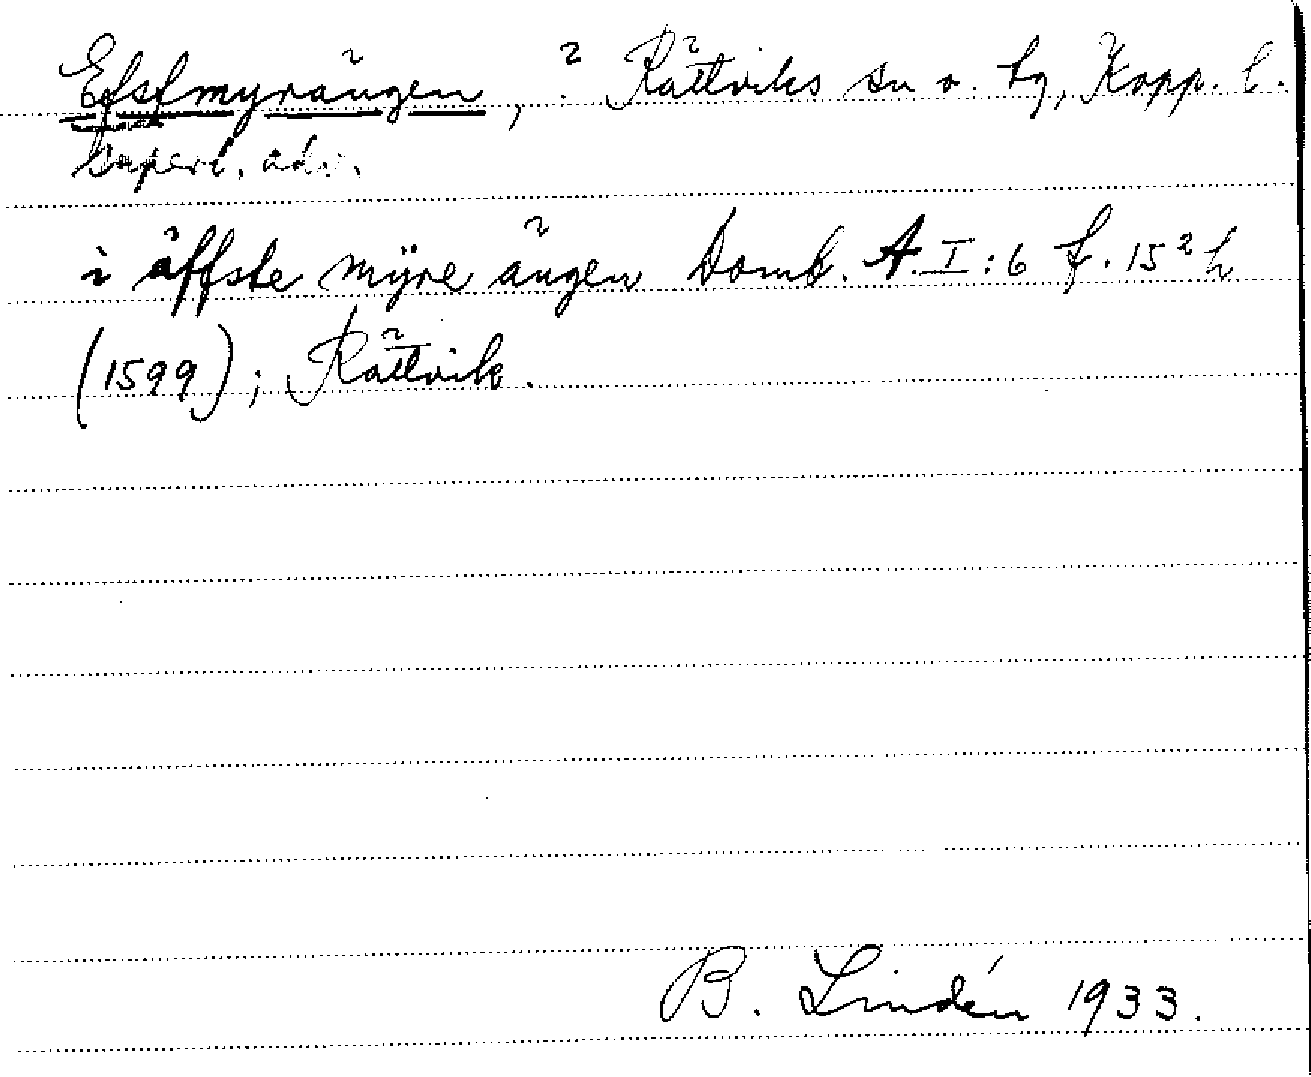 Efstmyrängen, ? Rättviks sn o. tg, Kopp. l.
Superl. adv.
i äffste mÿre ängen Domb. A.I:6 f. 15² h
(1599); Rättvik.
B. Lindén 1933.